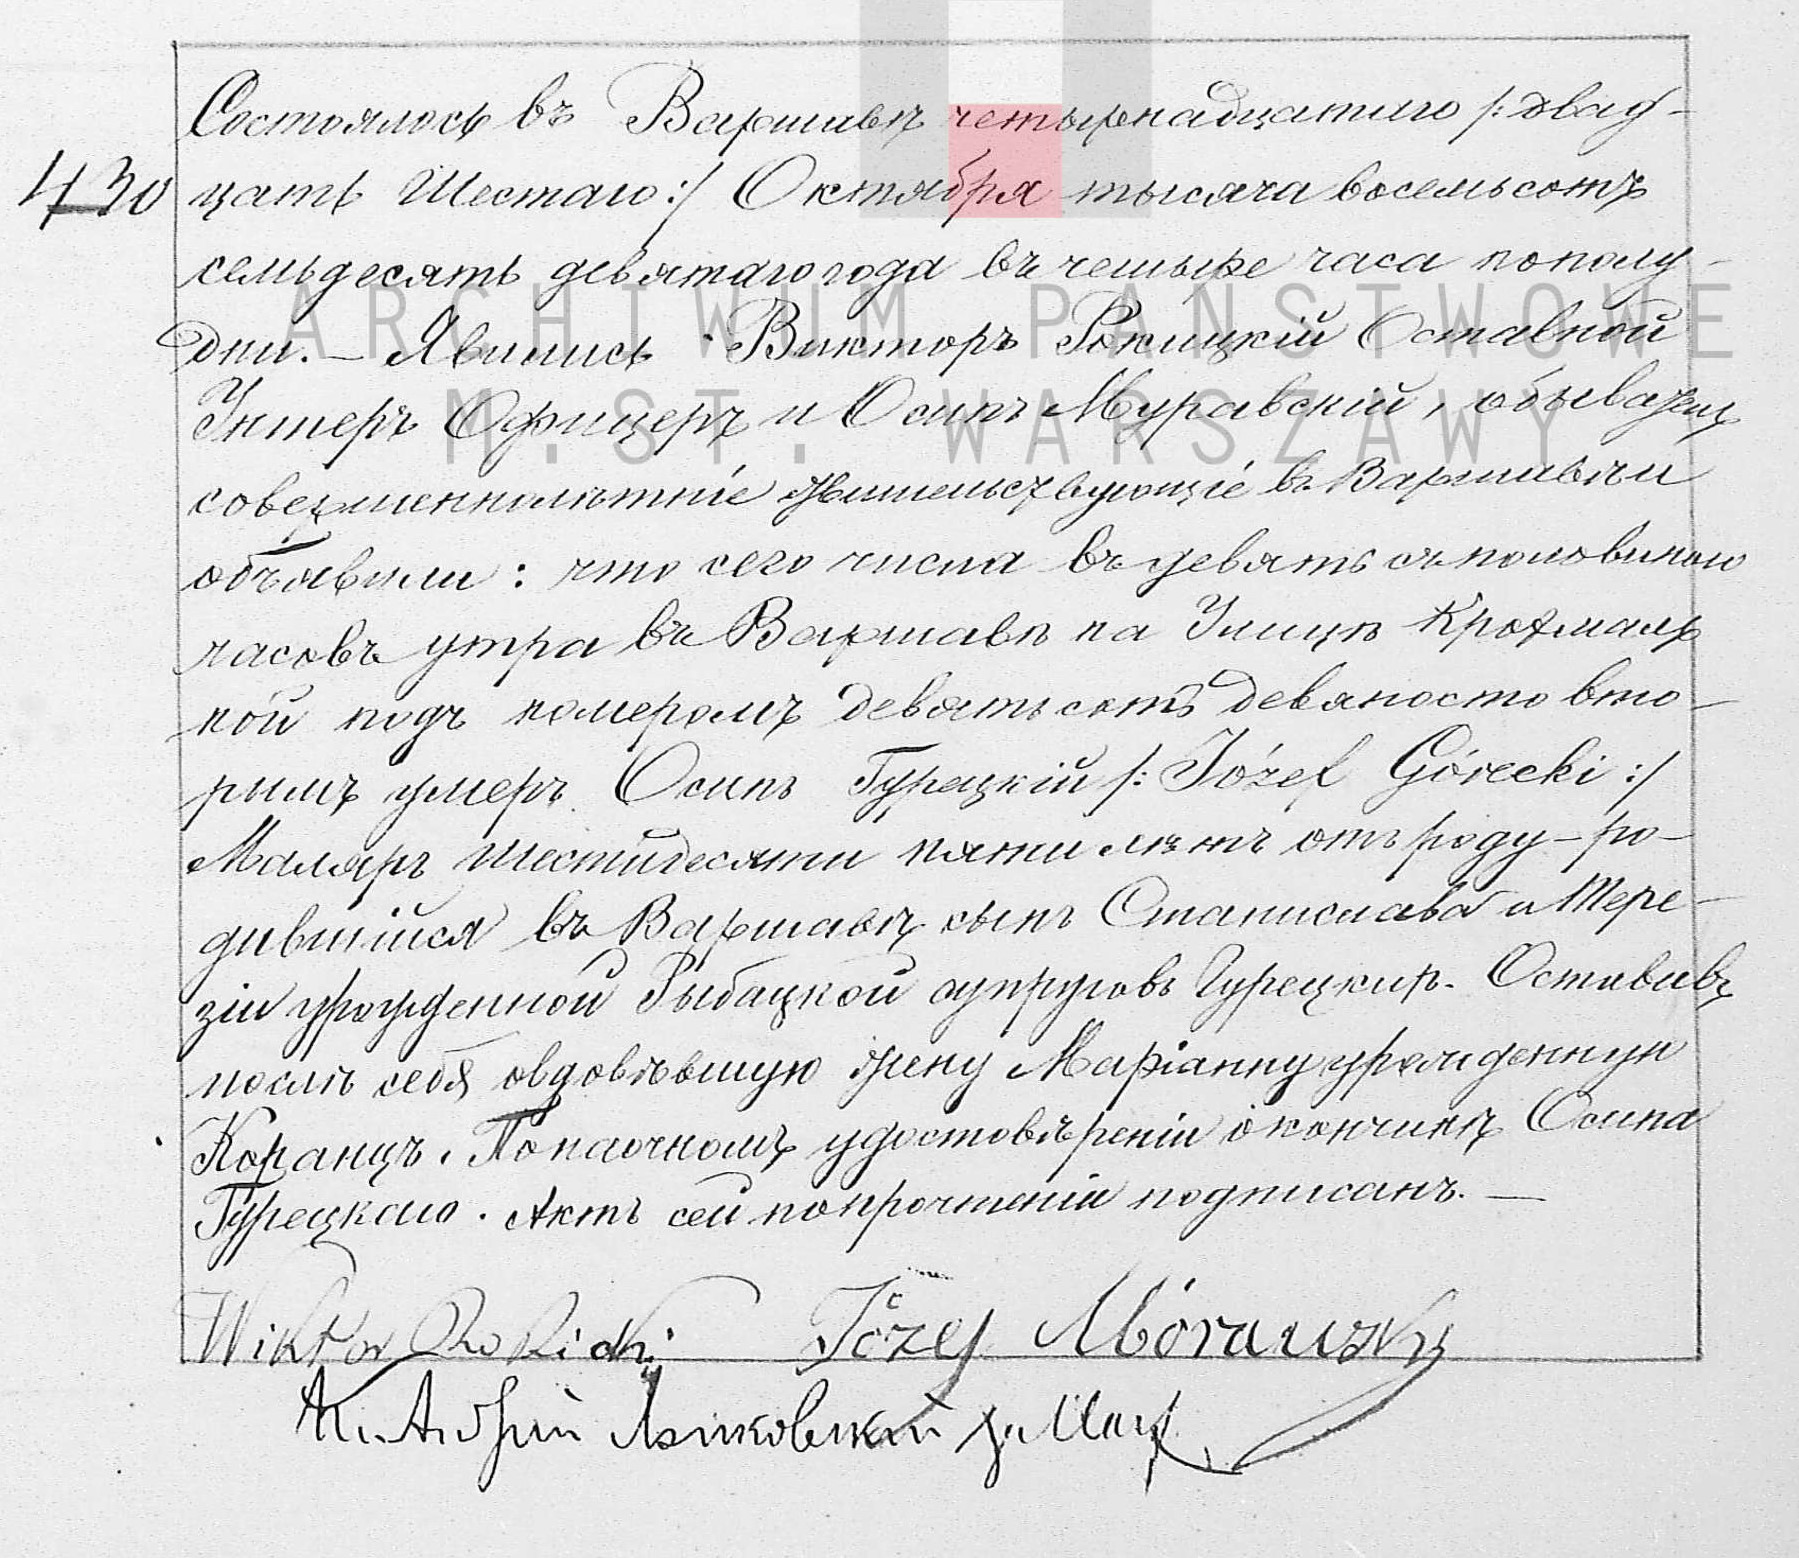 Состоялось въ Варшавѣ четырнадцатаго /: двад-
430
цать Шестаго :/ Октября тысяча восемьсотъ
семьдесятъ девятаго года въ четыре часа пополу-
ARCHIWUM PAŃSTWOWE
дни. — Явились Викторъ Рокицкій Оставной
Унтеръ Офицеръ и Осипъ Муравскій, обыватели
M.ST. WARSZAWY
совершеннолѣтніе жительствующіе въ Варшавѣ и
объявили: что сего числа въ девять съ половиною
часовъ утра въ Варшавѣ на Улицѣ Крохмаль
ной подъ номеромъ девятьсотъ девяносто вто-
рымъ умеръ Осипъ Гурецкій /: Józef Górecki :/
Маляръ шестидесяти пяти лѣтъ отъ роду — ро-
дившійся въ Варшавѣ, сынъ Станислава и Тере-
зіи урожденной Рыбацкой супруговъ Гурецкихъ. Оставивъ
послѣ себя овдовѣвшую жену Маріанну урожденную
Коранцъ. По наочномъ удостовѣреніи о кончинѣ Осипа
Гурецкаго. Актъ сей по прочтеніи подписанъ. —
Wiktor Rokicki Józef Mórawski